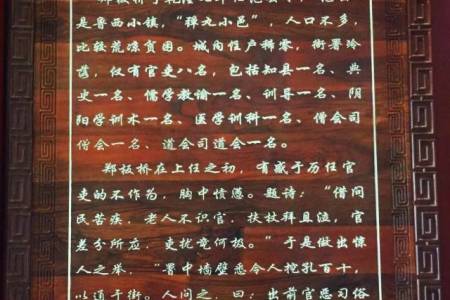 是鲁西小镇，“弹丸小邑”，人口不多，
比较荒凉贫困。城内住户稀零，衙署冷
落，仅有官吏八名，包括知县一名、典
史一名、儒学教谕一名、训导一名、阴
阳学训术一名、医学训科一名、僧会司
僧会一名、道会司道会一名。
郑板桥在上任之初，有感于历任官
吏的不作为，胸中愤懑。题诗：“借问
民苦疾，老人不识官，扶杖拜且泣，官
差分所应，吏扰竟何极。”于是做出惊
人之举，“署中墙壁悉令人挖孔百十，
以通于街。人问之，曰：出前官恶习俗